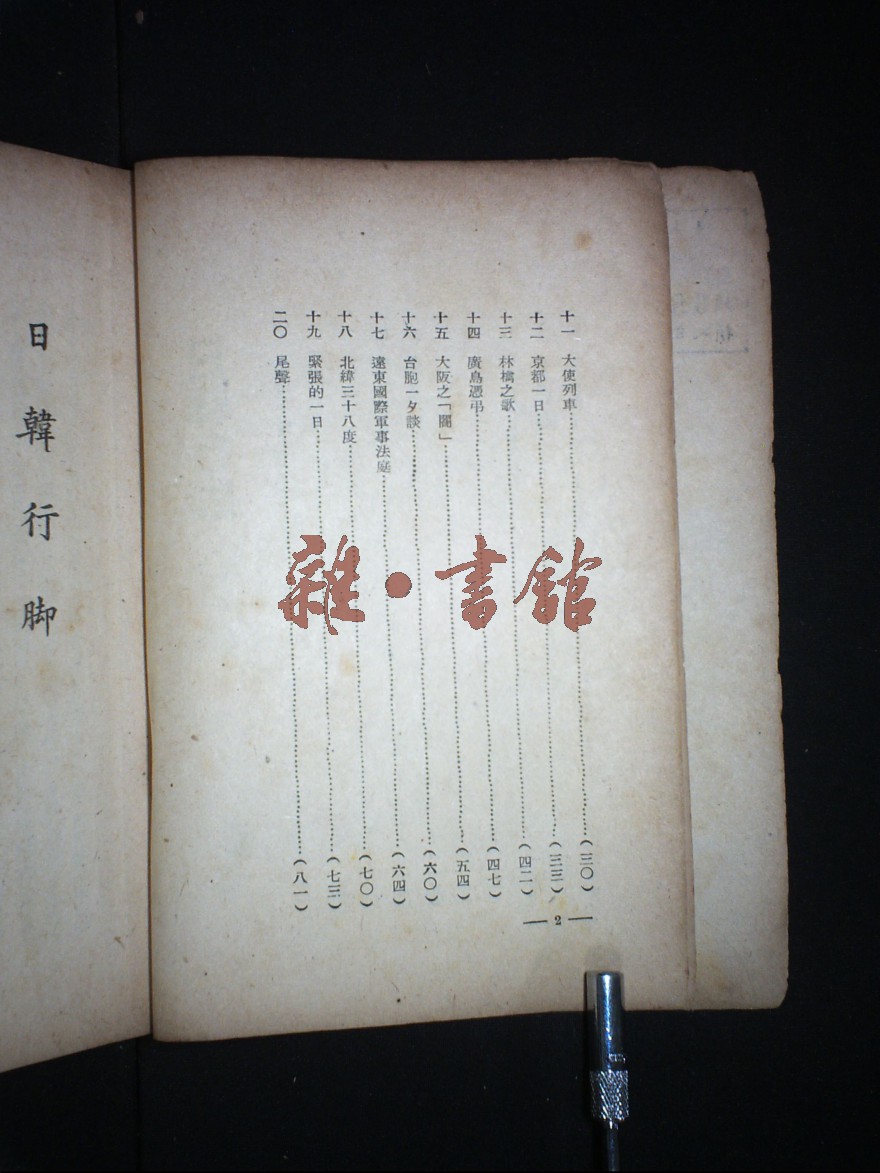 十一 大使列車……(三〇)
十二 京都一日……(三三)
十三 林檎之歌……(四二)
十四 廣島憑弔……(四七)
十五 大阪之「闇」……(五四)
十六 台胞一夕談……(六〇)
十七 遠東國際軍事法庭……(六四)
十八 北緯三十八度……(七〇)
十九 緊張的一日……(七三)
二〇 尾聲……(八一)
— 2 —
日韓行脚
雜·書館